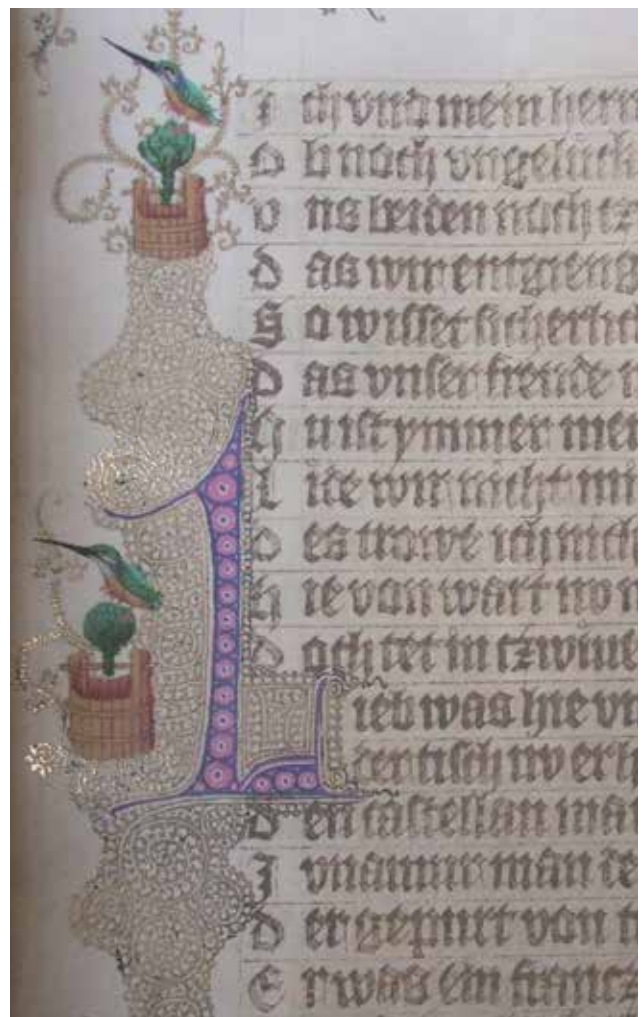 I ch vnd mein herr
O b noch vngelück
V ns beiden noch tz
D as wir entgieng
S o wisset sicherlich
D as vnser freude
N u ist ymmer mer
L ite wir nicht mi
D es trowe ich nich
H ie von wart no
D och tet in tzwiue
Lieb was hie vn
den tisch nv
D en castellan man
I vnamur man de
D er gepurt von
E r was ein francz